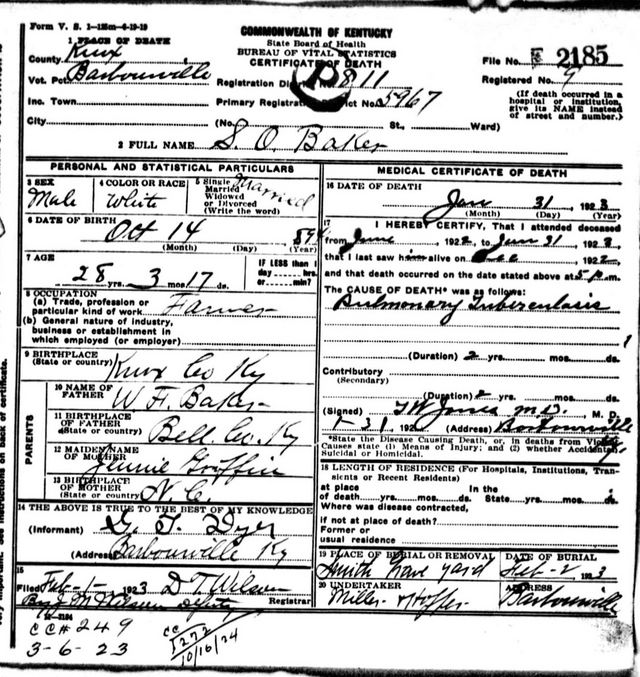 Form V. S. 1—125m—4-19-19
COMMONWEALTH OF KENTUCKY
State Board of Health
BUREAU OF VITAL STATISTICS
CERTIFICATE OF DEATH
1 PLACE OF DEATH
County Knox
Vot. Pct. Barbourville
Inc. Town
City (No. St., Ward)
Registration District No. 811
Primary Registration District No. 5967
File No. 2185
Registered No. 9
(If death occurred in a hospital or institution, give its NAME instead of street and number.)
2 FULL NAME S. O. Baker
PERSONAL AND STATISTICAL PARTICULARS
3 SEX Male
4 COLOR OR RACE White
5 Single Married Widowed or Divorced (Write the word) Married
6 DATE OF BIRTH Oct 14
(Month) (Day) (Year)
7 AGE 28 yrs. 3 mos. 17 ds.
IF LESS than 1 day hrs. or min.?
8 OCCUPATION
(a) Trade, profession or particular kind of work Farmer
(b) General nature of industry, business or establishment in which employed (or employer)
9 BIRTHPLACE (State or country) Knox Co Ky
PARENTS
10 NAME OF FATHER W. H. Baker
11 BIRTHPLACE OF FATHER (State or country) Bell Co. Ky
12 MAIDEN NAME OF MOTHER Jennie Griffin
13 BIRTHPLACE OF MOTHER (State or country) N. C.
14 THE ABOVE IS TRUE TO THE BEST OF MY KNOWLEDGE
(Informant) G. T. Dyer
(Address) Barbourville Ky
15
Filed Feb-1-1923 D T Wilson
Deputy Registrar
CC# 249
3-6-23
CC
1272
10/16/24
MEDICAL CERTIFICATE OF DEATH
16 DATE OF DEATH
Jan 31, 1923
(Month) (Day) (Year)
17 I HEREBY CERTIFY, That I attended deceased
from June 1922, to Jan 31 1923,
that I last saw him alive on Dec 1922,
and that death occurred on the date stated above at 5 p.m.
The CAUSE OF DEATH* was as follows:
Pulmonary Tuberculosis
(Duration) 2 yrs. mos. ds.
Contributory (Secondary)
(Duration) 2 yrs. mos. ds.
(Signed) Jones M.D., M. D.
1-31, 192 (Address) Barbourville
*State the Disease Causing Death, or, in deaths from Violent Causes state (1) Means of Injury; and (2) whether Accidental, Suicidal or Homicidal.
18 LENGTH OF RESIDENCE (For Hospitals, Institutions, Transients or Recent Residents)
at place of death yrs. mos. ds. In the State yrs. mos. ds.
Where was disease contracted,
if not at place of death?
Former or usual residence
19 PLACE OF BURIAL OR REMOVAL
Smith Grave yard
DATE OF BURIAL
Feb-2, 1923
20 UNDERTAKER
Miller Hopper
ADDRESS
Barbourville